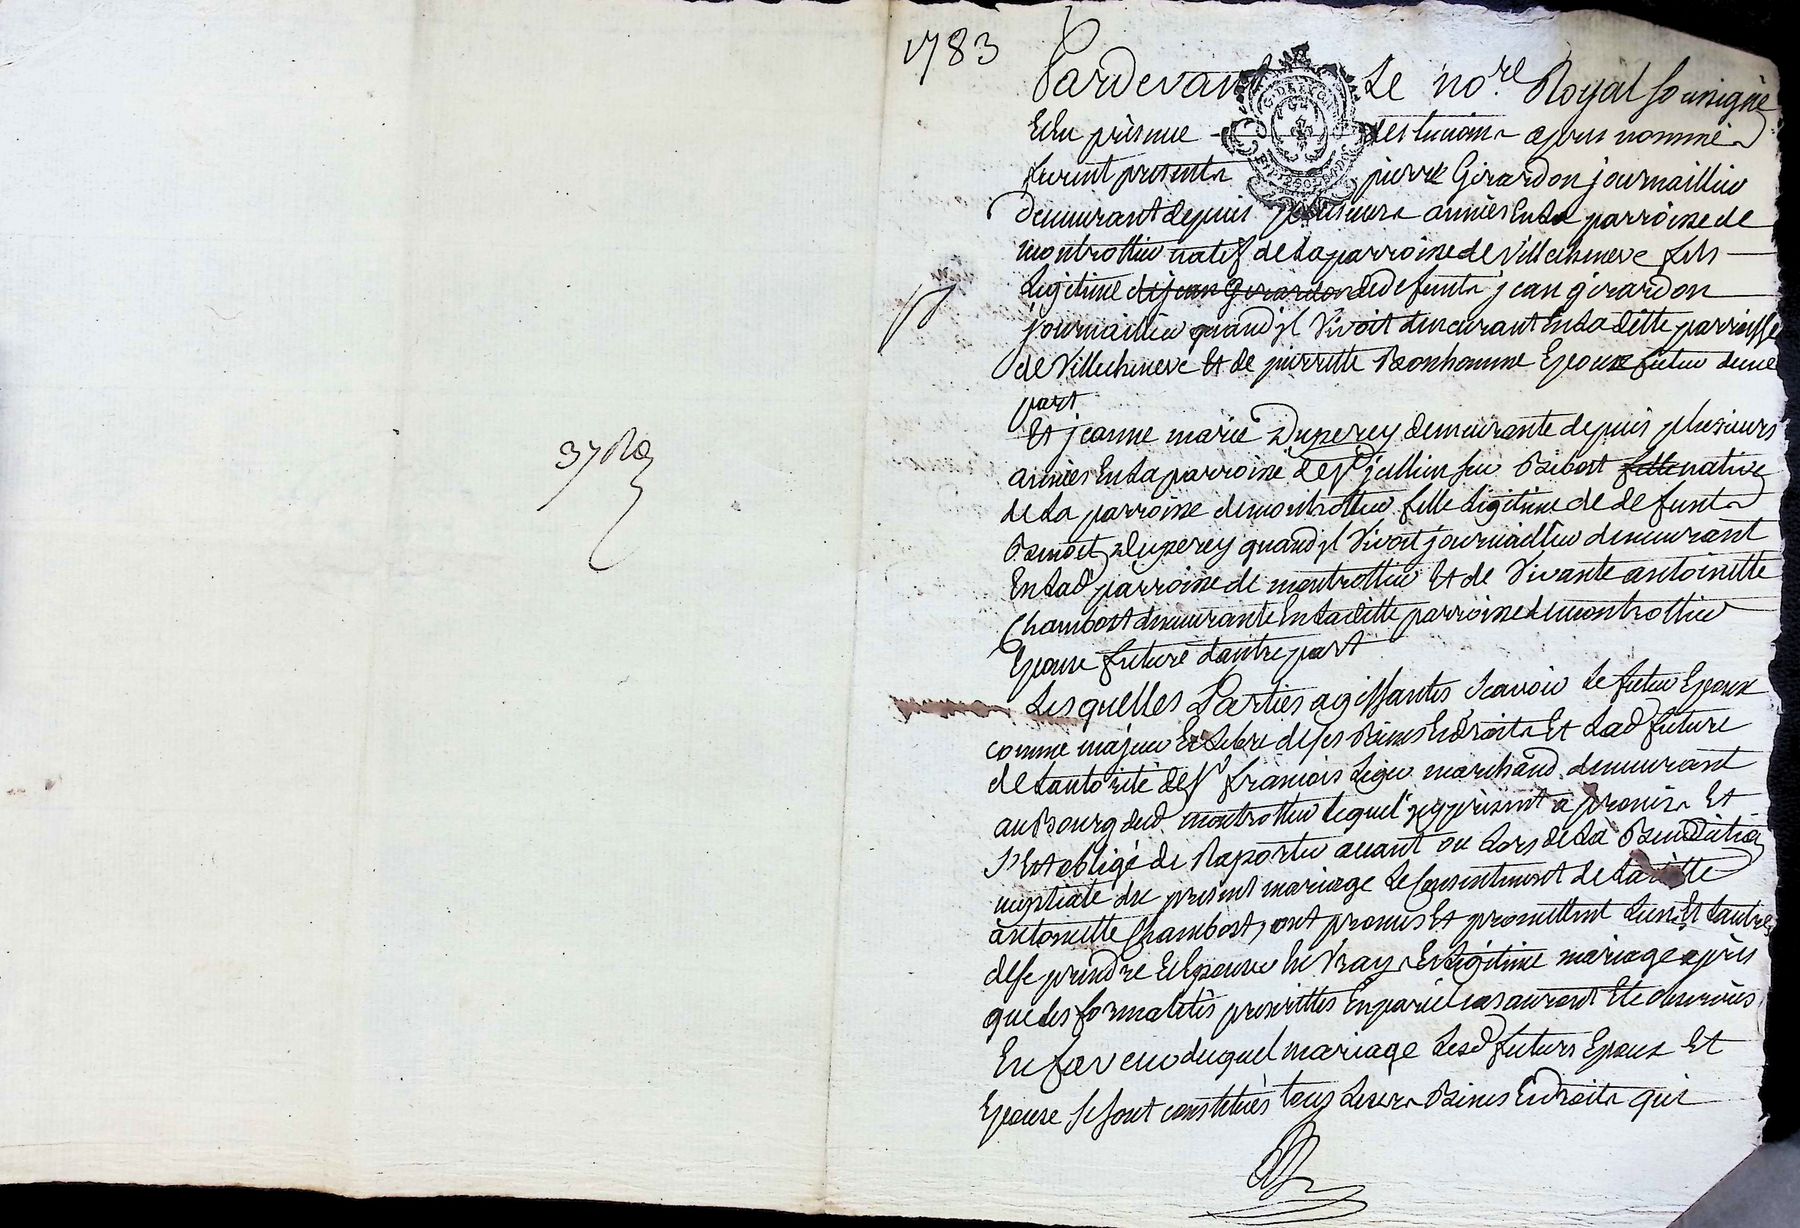 1783
Pardevant Le no.re Royal Sousigné
Et En presence des temoins apres nommés
furent presents pierre Girardon journaillier
demeurant depuis plusieurs années En La parroisse de
montrottier natif de La parroisse de Villecheneve fils
Legitime de jean Girardon de defunts jean girardon
journaillier quand jl Vivoit demeurant En La ditte parroisse
de Villecheneve Et de pierrette Bonhomme Epoux futur dune
part
Et jeanne marie Duperey demeurante depuis plusieurs
années En La parroisse de St jullien sur Bibost fille native
de La parroisse de montrottier fille Legitime de defunts
Benoit Duperey quand jl Vivoit journaillier demeurant
En Lad parroisse de montrottier Et de Vivante antoinette
Chambost demeurante En Laditte parroisse de montrottier
Epouse future dautre part
Lesquelles Parties agissantes scavoir Le futur Epoux
comme majeur Et Libre de ses Biens Et droits Et Lad future
de Lautorité de Sr francois Leger marchand demeurant
au Bourg dud. montrottier lequel jcy present a promis Et
s'Est obligé de Raporter avant ou Lors de La Benediction
nuptiale du present mariage Le Consentement de Laditte
antoinette Chambost, ont promis Et promettent Lun Et Lautre
de se prendre Et Epouser En Vray Et Legitime mariage apres
que Les formalités prescrittes En pareil cas auront Eté observées
En faveur duquel mariage Lesd futurs Epoux Et
Epouse se sont constitués tous Leurs Biens Et droits qui
37 Re